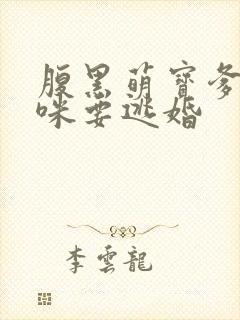 腹黑萌寶爹
咪要逃婚
李雲龍